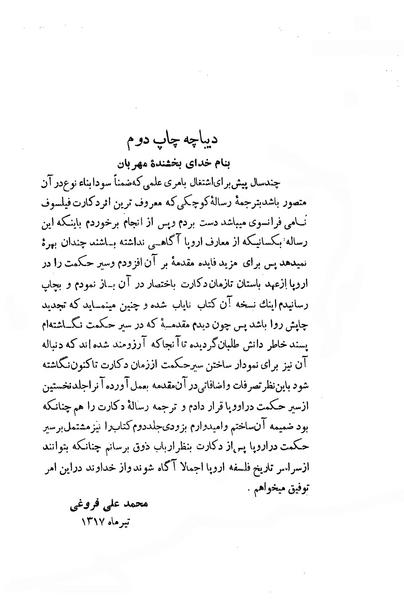 دیباچه چاپ دوم
بنام خدای بخشندهٔ مهربان
چندسال پیش برای اشتغال بامری علمی که ضمناً سودابناء نوع در آن
متصور باشد بترجمهٔ رسالهٔ کوچکی که معروف ترین اثر دکارت فیلسوف
نامی فرانسوی میباشد دست بردم وپس از انجام برخوردم باینکه این
رساله بکسانیکه از معارف اروپا آگاهی نداشته باشند چندان بهرهٔ
نمیدهد پس برای مزید فایده مقدمهٔ بر آن افزودم وسیر حکمت را در
اروپا ازعهد باستان تازمان دکارت باختصار در آن بـاز نمودم و بچاپ
رسانیدم اینك نسخه آن کتاب نایاب شده و چنین مینماید که تجدید
چاپش روا باشد پس چون دیدم مقدمـهٔ که در سیر حکمت نگاشته‌ام
پسند خاطر دانش طلبان گردیده تا آنجا که آرزومند شده اند که دنباله
آن نیز برای نمودار ساختن سیرحکمت اززمان دکارت تاکنون نگاشته
شود باین‌نظر تصرفات واضافاتی در آن مقدمه بعمل آورده آنرا جلدنخستین
ازسیر حکمت دراروپا قرار دادم و ترجمه رسالهٔ دکارت را هم چنانکه
بود ضمیمه آن ساختم وامیدوارم بزودی جلددوم کتاب را نیز مشتمل برسیر
حکمت دراروپا پس از دکارت بنظر ارباب ذوق برسانم چنانکه بتوانند
ازسراسر تاریخ فلسفه اروپا اجمالا آگاه شوند واز خداوند در این امر
توفیق میخواهم .
محمد علی فروغی
تیر ماه ۱۳۱۷